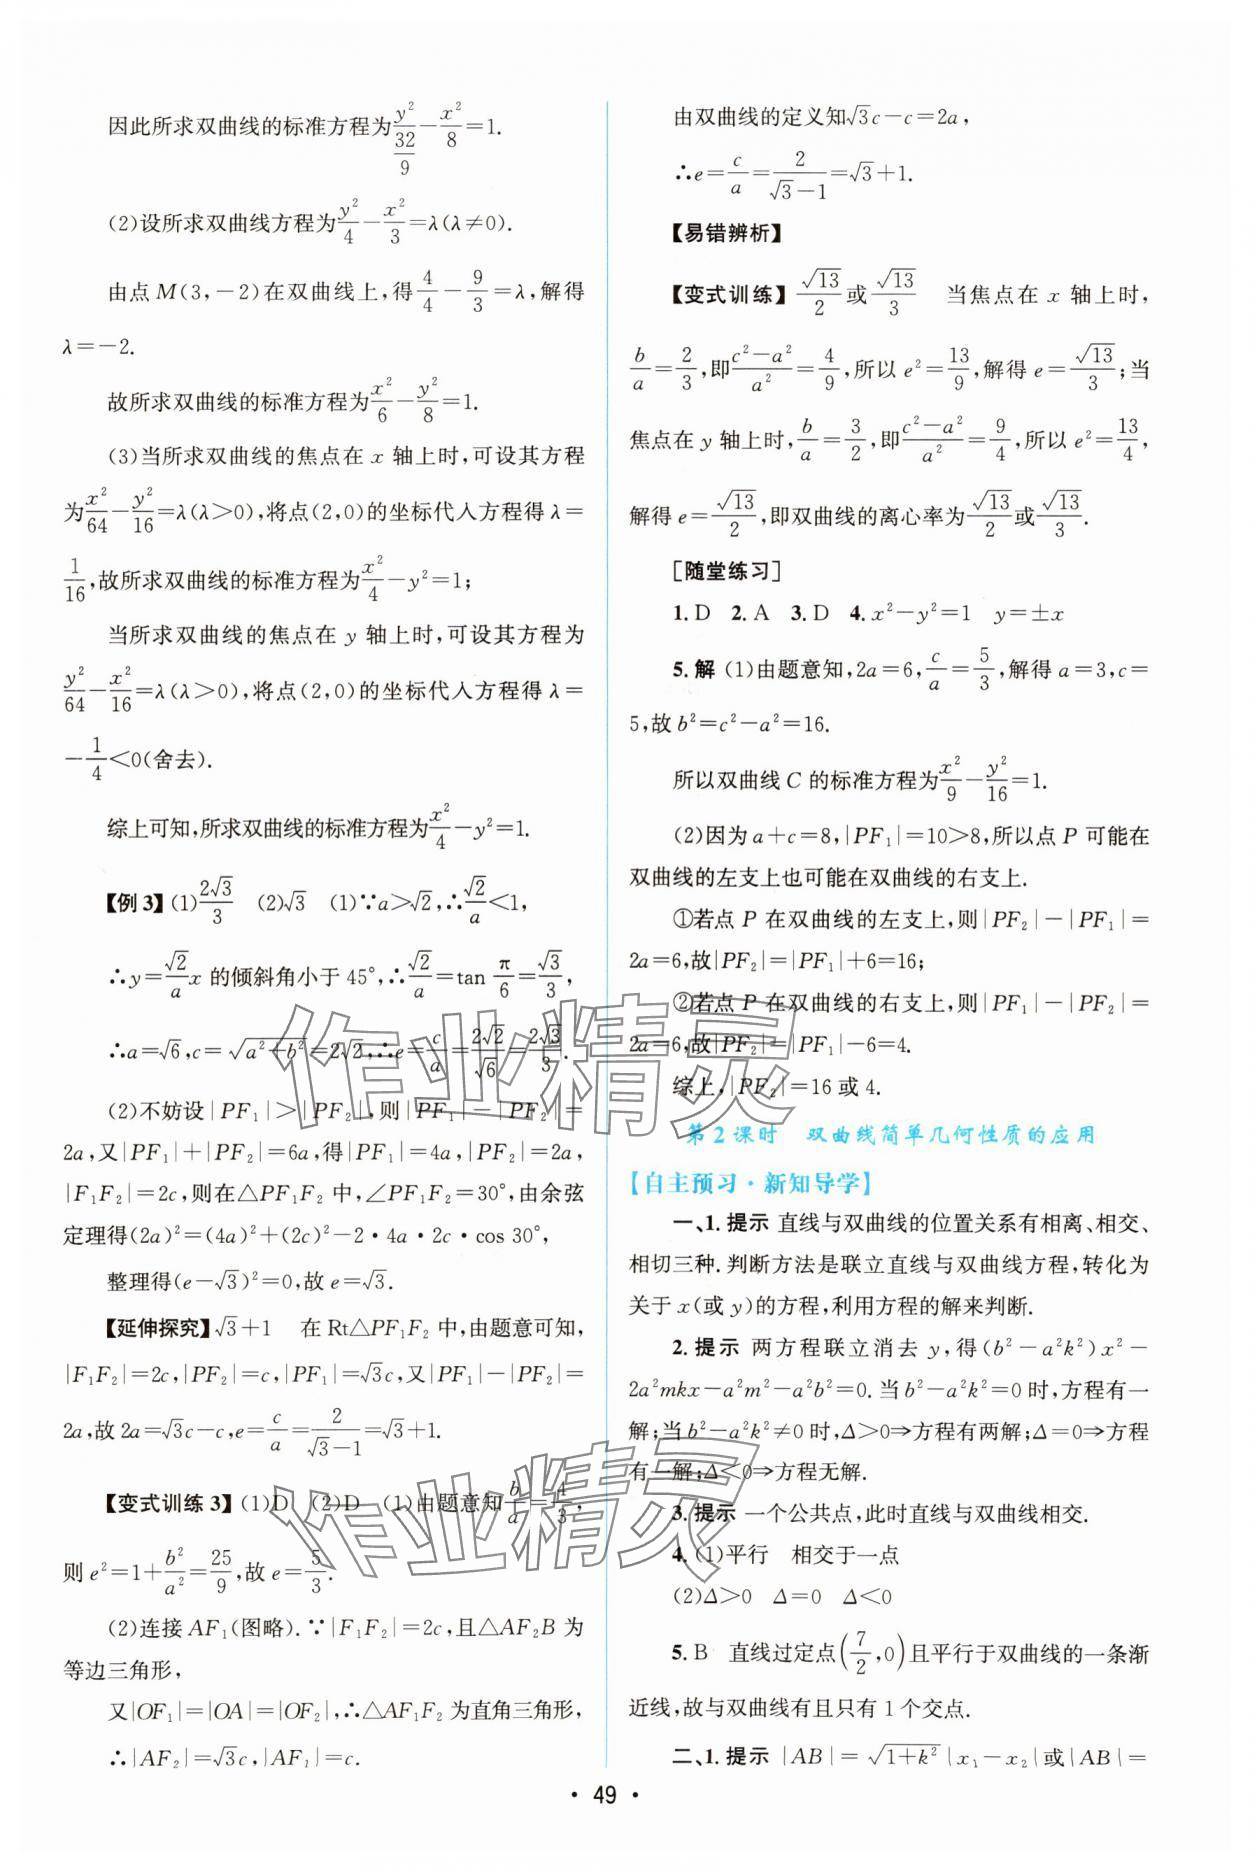 因此所求双曲线的标准方程为y²/(32/9)－x²/8=1.
(2)设所求双曲线方程为y²/4－x²/3=λ(λ≠0).
由点M(3,－2)在双曲线上,得4/4－9/3=λ,解得
λ=－2.
故所求双曲线的标准方程为x²/6－y²/8=1.
(3)当所求双曲线的焦点在 x 轴上时,可设其方程
为x²/64－y²/16=λ(λ>0),将点(2,0)的坐标代入方程得λ=
1/16,故所求双曲线的标准方程为x²/4－y²=1;
当所求双曲线的焦点在 y 轴上时,可设其方程为
y²/64－x²/16=λ(λ>0),将点(2,0)的坐标代入方程得λ=
－1/4<0(舍去).
综上可知,所求双曲线的标准方程为x²/4－y²=1.
【例3】(1)2√3/3 (2)√3 (1)∵a>√2,∴√2/a<1,
∴y=√2/a x 的倾斜角小于45°,∴√2/a=tan π/6=√3/3,
∴a=√6,c=√(a²+b²)=2√2,∴e=c/a=2√2/√6=2√3/3.
(2)不妨设|PF₁|>|PF₂|,则|PF₁|－|PF₂|=
2a,又|PF₁|+|PF₂|=6a,得|PF₁|=4a,|PF₂|=2a,
|F₁F₂|=2c,则在△PF₁F₂中,∠PF₁F₂=30°,由余弦
定理得(2a)²=(4a)²+(2c)²－2·4a·2c·cos 30°,
整理得(e－√3)²=0,故e=√3.
【延伸探究】√3+1 在Rt△PF₁F₂中,由题意可知,
|F₁F₂|=2c,|PF₂|=c,|PF₁|=√3c,又|PF₁|－|PF₂|=
2a,故2a=√3c－c,e=c/a=2/(√3－1)=√3+1.
【变式训练3】(1)D (2)D (1)由题意知b/a=4/3,
则e²=1+b²/a²=25/9,故e=5/3.
(2)连接AF₁(图略).∵|F₁F₂|=2c,且△AF₂B为
等边三角形,
又|OF₁|=|OA|=|OF₂|,∴△AF₁F₂为直角三角形,
∴|AF₂|=√3c,|AF₁|=c.
由双曲线的定义知√3c－c=2a,
∴e=c/a=2/(√3－1)=√3+1.
【易错辨析】
【变式训练】√13/2或√13/3 当焦点在 x 轴上时,
b/a=2/3,即(c²－a²)/a²=4/9,所以e²=13/9,解得e=√13/3;当
焦点在 y 轴上时,b/a=3/2,即(c²－a²)/a²=9/4,所以e²=13/4,
解得e=√13/2,即双曲线的离心率为√13/2或√13/3.
[随堂练习]
1.D 2.A 3.D 4.x²－y²=1 y=±x
5.解 (1)由题意知,2a=6,c/a=5/3,解得a=3,c=
5,故b²=c²－a²=16.
所以双曲线C的标准方程为x²/9－y²/16=1.
(2)因为a+c=8,|PF₁|=10>8,所以点P可能在
双曲线的左支上也可能在双曲线的右支上.
①若点P在双曲线的左支上,则|PF₂|－|PF₁|=
2a=6,故|PF₂|=|PF₁|+6=16;
②若点P在双曲线的右支上,则|PF₁|－|PF₂|=
2a=6,故|PF₂|=|PF₁|－6=4.
综上,|PF₂|=16或4.
第2课时 双曲线简单几何性质的应用
【自主预习·新知导学】
一、1.提示 直线与双曲线的位置关系有相离、相交、
相切三种.判断方法是联立直线与双曲线方程,转化为
关于x(或y)的方程,利用方程的解来判断.
2.提示 两方程联立消去y,得(b²－a²k²)x²－
2a²mkx－a²m²－a²b²=0.当b²－a²k²=0时,方程有一
解;当b²－a²k²≠0时,Δ>0⇒方程有两解;Δ=0⇒方程
有一解;Δ<0⇒方程无解.
3.提示 一个公共点,此时直线与双曲线相交.
4.(1)平行 相交于一点
(2)Δ>0 Δ=0 Δ<0
5.B 直线过定点(7/2,0)且平行于双曲线的一条渐
近线,故与双曲线有且只有1个交点.
二、1.提示 |AB|=√(1+k²)|x₁－x₂|或|AB|=
·49·
作业精灵
作业精灵